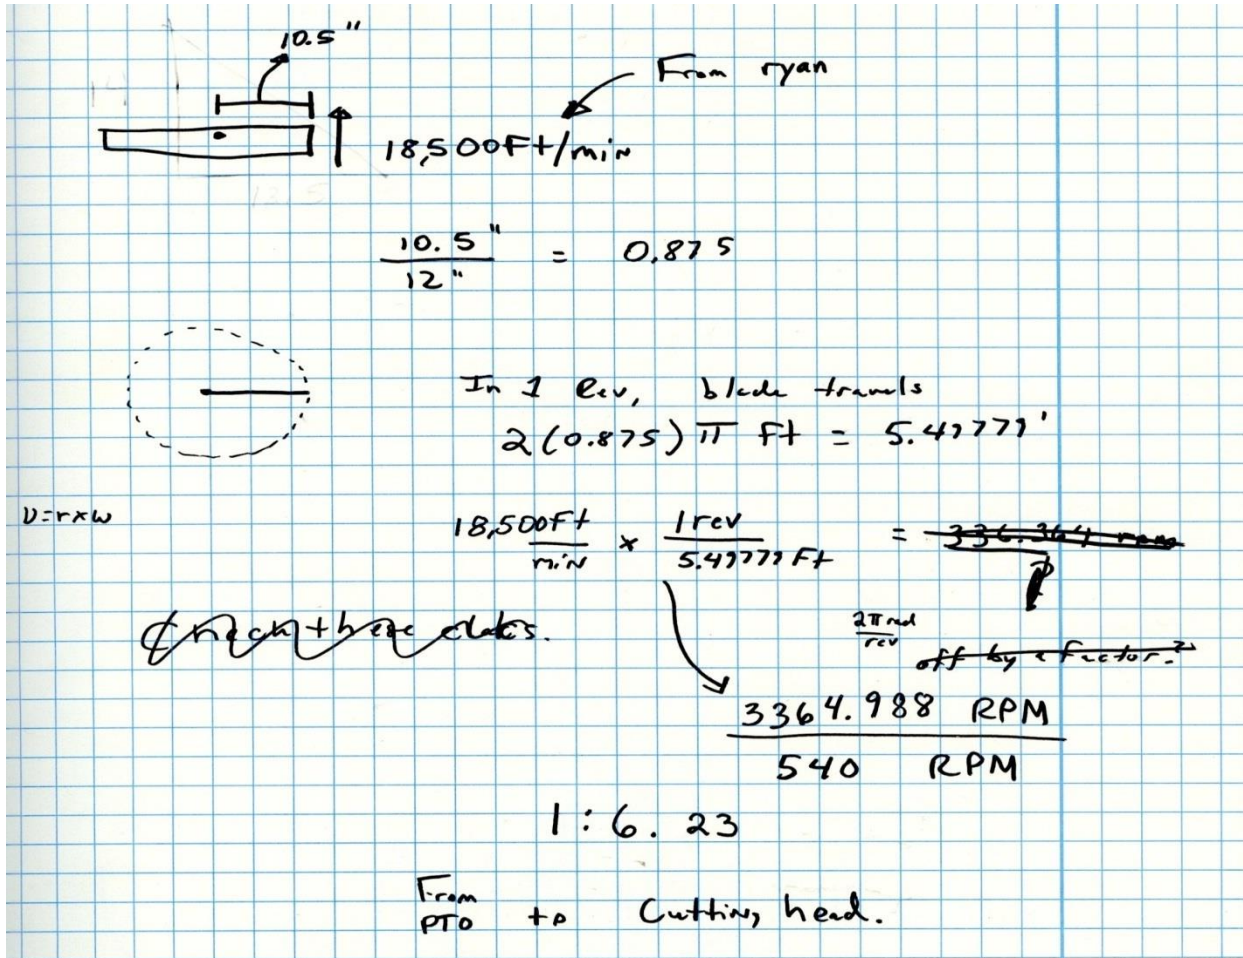 10.5"
From ryan
18,500Ft/min
10.5" / 12" = 0.875
In 1 Rev, blade travels
2(0.875) π Ft = 5.49779'
V=r×ω
18,500Ft / min × 1rev / 5.49779 Ft = 336.364 rpm
2π rad / rev
off by a factor?
3364.988 RPM
540 RPM
1:6.23
From PTO to Cutting head.